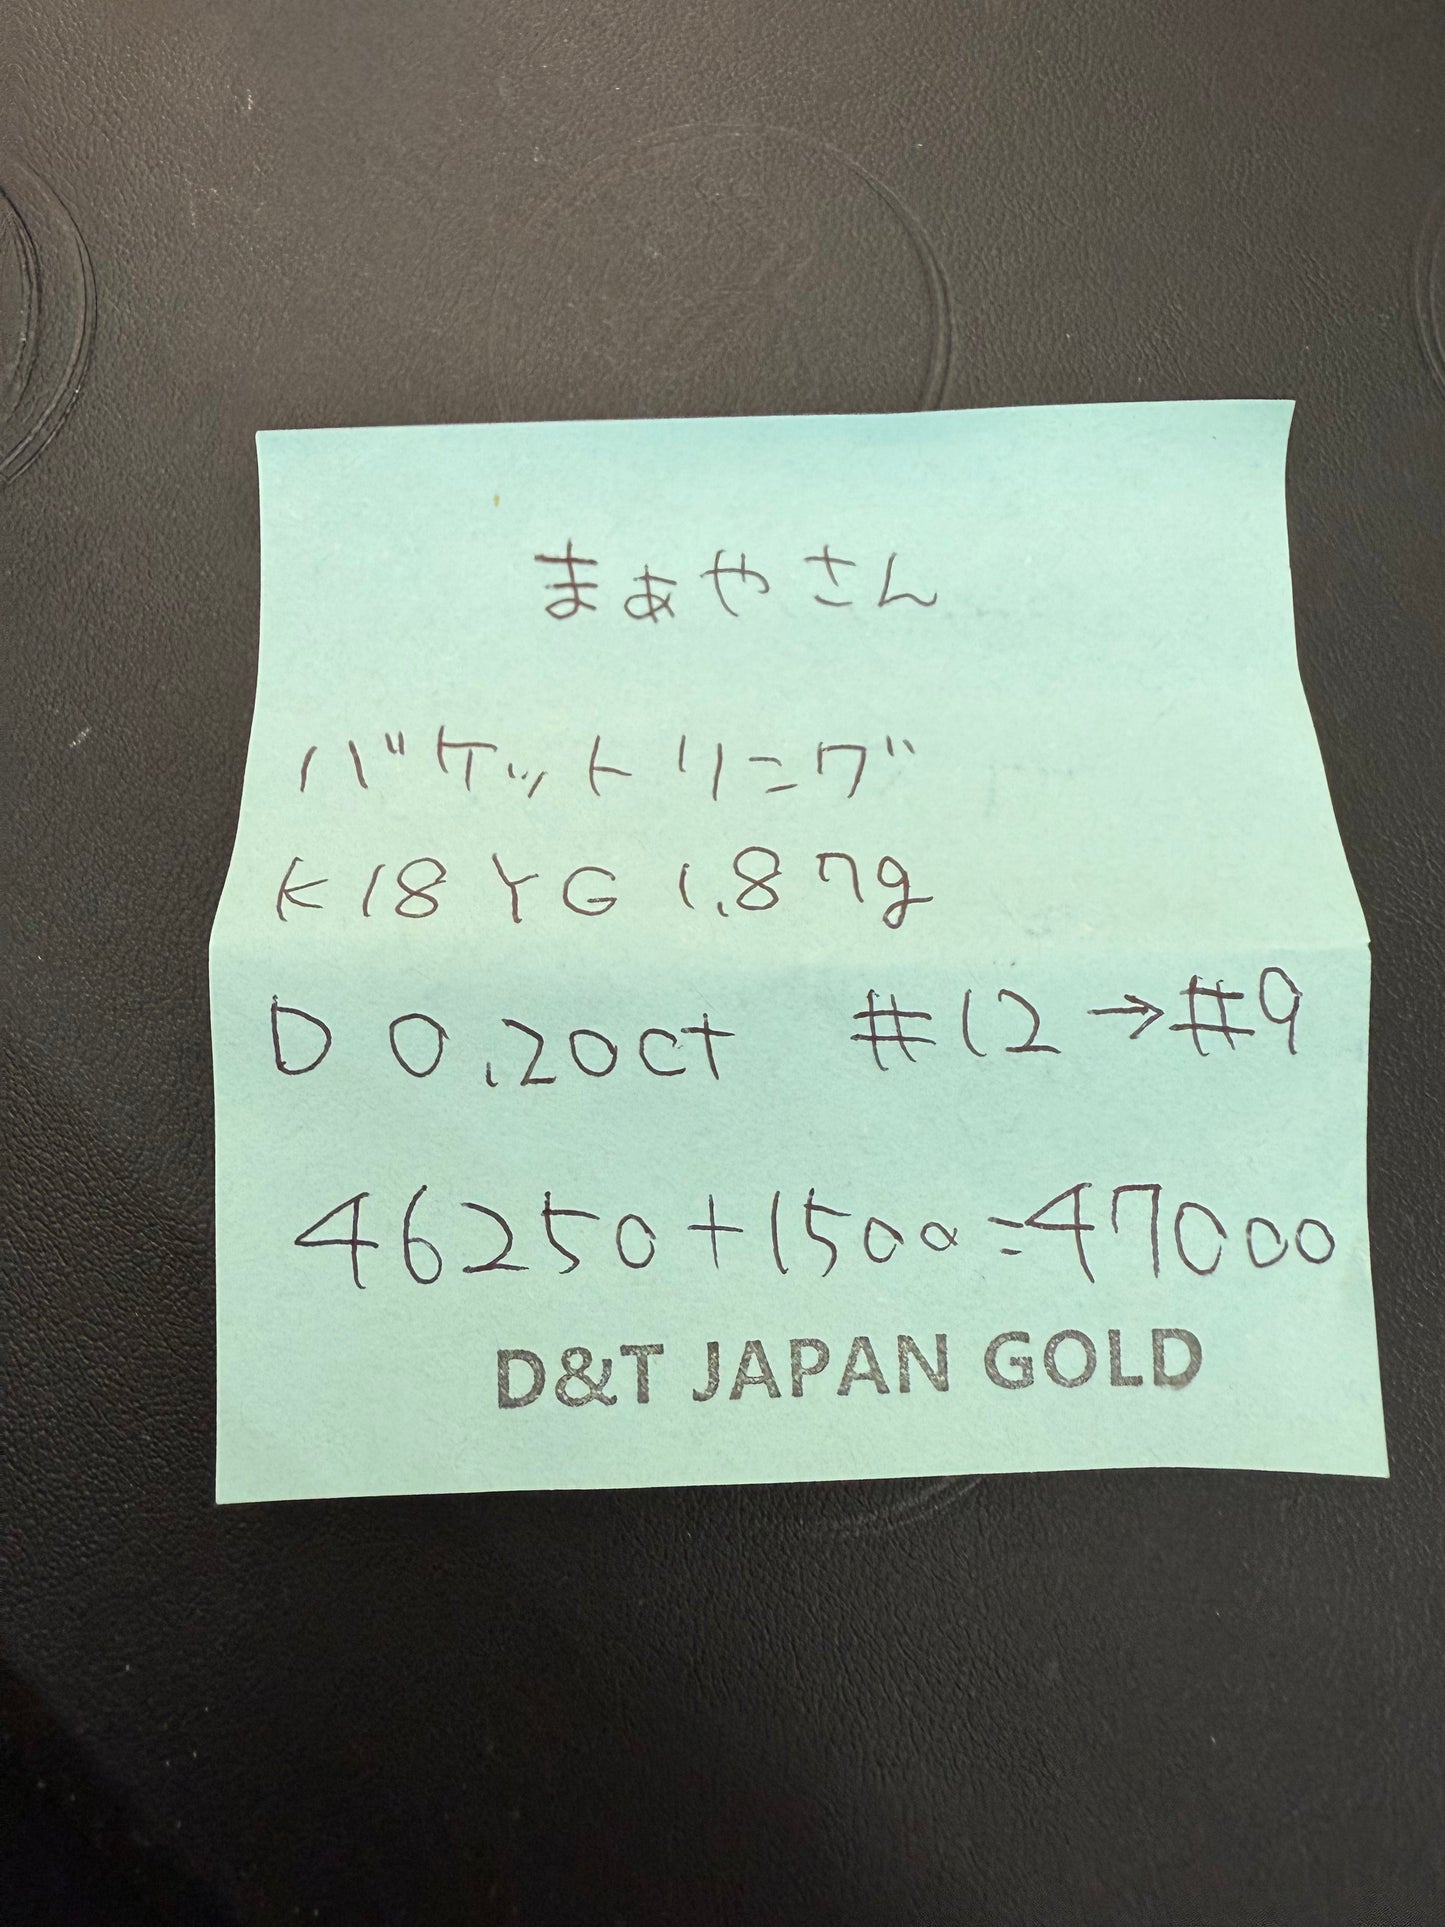 まぁやさん
バケットリング
K18 YG 1.87g
D 0.20ct #12→#9
46250+1500=47000
D&T JAPAN GOLD